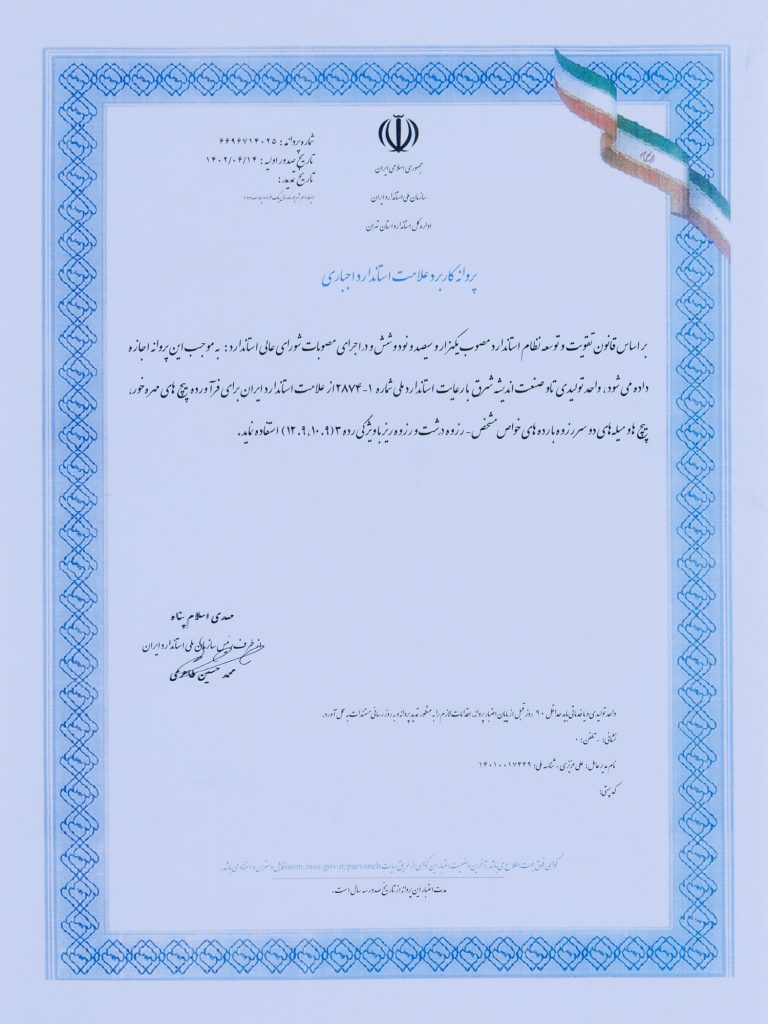 جمهوری اسلامی ایران
سازمان ملی استاندارد ایران
اداره کل استاندارد استان تهران
شماره پروانه: ۶۶۹۶۷۱۴۰۲۵
تاریخ صدور اولیه: ۱۴۰۲/۰۶/۱۴
تاریخ تمدید:
پروانه کاربرد علامت استاندارد اجباری
بر اساس قانون تقویت و توسعه نظام استاندارد مصوب یکهزار و سیصد و نود و شش و در اجرای مصوبات شورای عالی استاندارد: به موجب این پروانه اجازه
داده می شود: واحد تولیدی تاو صنعت اندیشه شرق با رعایت استاندارد ملی شماره ۱-۲۸۷۴ از علامت استاندارد ایران برای فرآورده پیچ های مهره خور،
پیچ ها و میله های دو سر رزوه با رده های خواص مشخص - رزوه درشت و رزوه ریز با ویژگی رده ۳ (۱۰.۹، ۱۲.۹) استفاده نماید.
مهدی اسلام پناه
از طرف رئیس سازمان ملی استاندارد ایران
محمد حسین
واحد تولیدی و یا خدماتی باید حداقل ۹۰ روز قبل از پایان اعتبار پروانه، اقدامات لازم را به منظور تمدید پروانه و به روز رسانی مستندات به عمل آورد.
نشانی: - تلفن: ۰
نام مدیر عامل: علی عزیزی - شناسه ملی: ۱۴۰۱۰۰۱۷۴۴۹
کد پستی:
گواهی فوق جهت اطلاع می باشد؛ آخرین وضعیت اعتبار این گواهی از طریق سایت isom.inso.gov.ir/parvaneh قابل دسترس و استناد می باشد.
مدت اعتبار این پروانه از تاریخ صدور سه سال است.